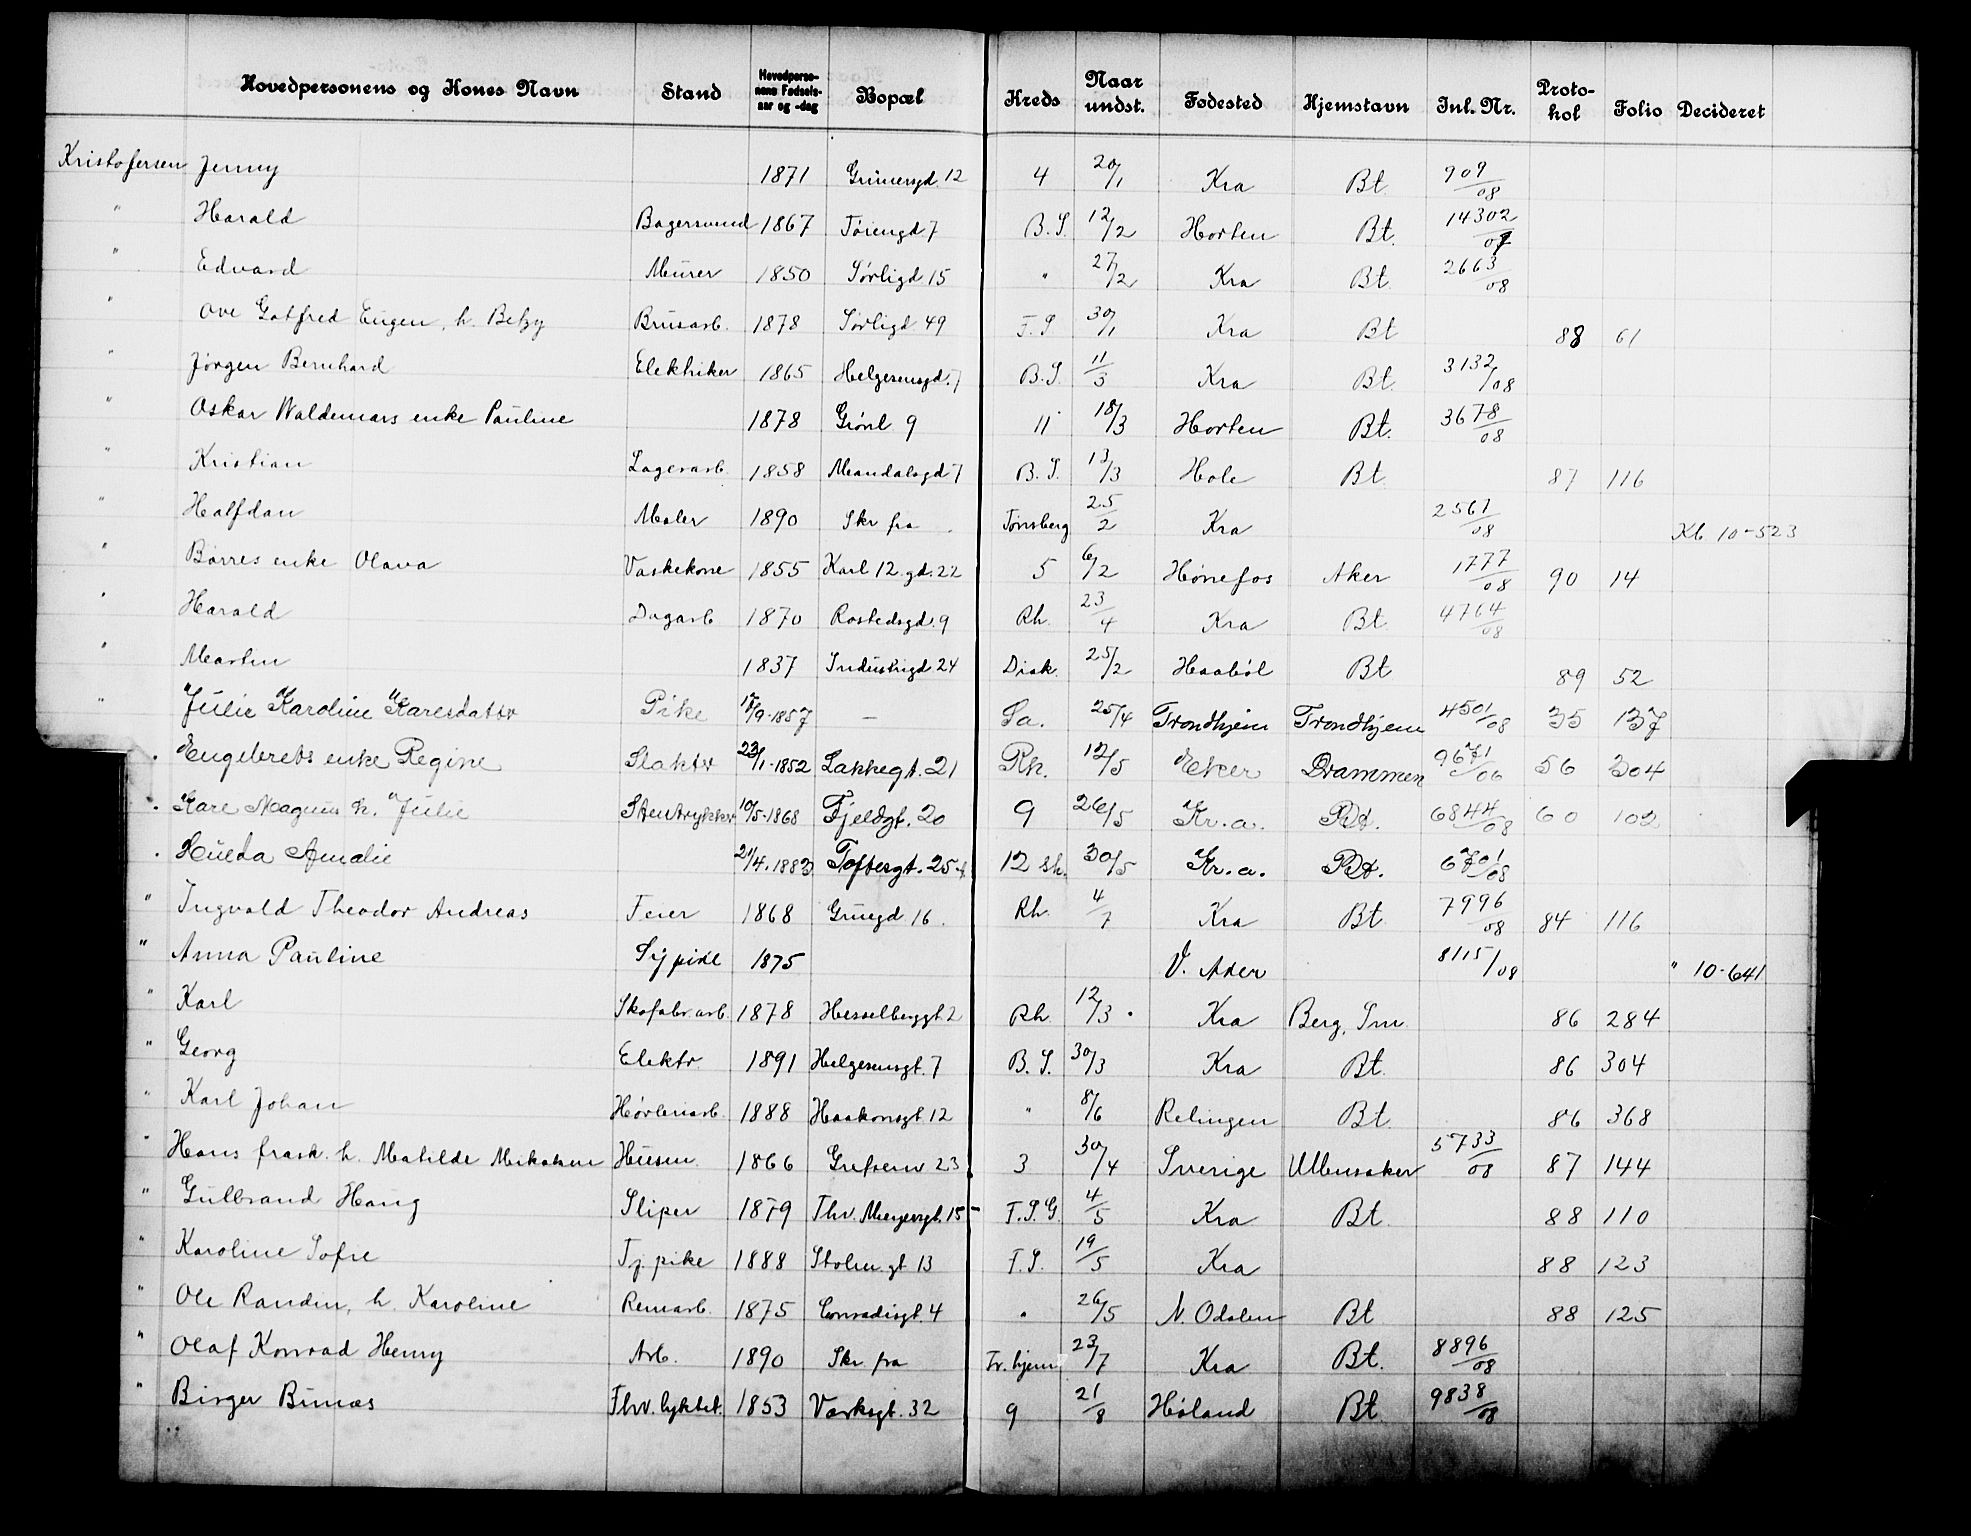 Hovedpersonens og Kones Navn Stand Hovedperso-nens Fødsels-aar og -dag Bopæl Kreds Naar undst. Fødested Hjemstavn Inl. Nr. Proto-kol Folio Decideret
Kristofersen Jenny 1871 Grünersgd. 12 4 20/1 Kra Bt. 909/08
" Harald Bagersvend 1867 Tøiengd 7 B.S. 12/2 Horten Bt. 14302/07
" Edvard Murer 1850 Sørligd 15 " 27/2 Kra Bt. 2663/08
" Ove Gotfred Eugen, h. Betzy Brusarb. 1878 Sørligd 49 F.S. 30/1 Kra Bt 88 61
" Jørgen Bernhard Elektriker 1865 Helgesensgd. 7 B.S. 11/3 Kra Bt. 3132/08
" Oskar Waldemars enke Pauline 1878 Grønl. 9 11 18/3 Horten Bt. 3678/08
" Kristian Lagerarb. 1858 Mandalsgd 7 B.S. 13/3 Hole Bt. 87 116
" Halfdan Maler 1890 Skr fra Tønsberg 25/2 Kra 2567/08 Kb 10-523
" Børres enke Olava Vaskekone 1855 Karl 12.gd. 22 5 6/2 Hønefos Aker 1777/08 90 14
" Harald Dagarb 1870 Rostedsgd. 9 Rh. 23/4 Kra Bt. 4764/08
" Martin 1837 Industrigd. 24 Diak. 25/2 Haabøl Bt 89 52
" Julie Karoline Karlsdatter Pike 18/9-1857 — Sa. 25/4 Trondhjem Trondhjem 4501/08 35 137
. Engebrets enke Regine Slakter 23/1-1852 Lakkegt. 21 Rh. 12/5 Eker Drammen 9671/06 56 304
. Karl Magnus h. Julie Stentrykker 10/5-1868 Fjeldgt. 20 9 26/5 Kr.a. Bt. 6844/08 60 102
. Hulda Amalie 21/4.1883 Toftesgt. 25 12 sk. 30/5 Kr.a. Bt. 6701/08
" Ingvald Theodor Andreas Feier 1868 Grüngd. 16. Rh. 4/7 Kra Bt. 7996/08 84 116
" Anna Pauline Sypike 1875 V. Aker 8115/08 " 10-641
" Karl Skofabr.arb. 1878 Hesselbergsgt. 2 Rh. 12/3 . Kra Berg, Sm. 86 284
" Georg Elektr. 1891 Helgesensgt. 7 B.S. 30/3 Kra Bt. 86 304
" Karl Johan Høvleriarb. 1888 Haakonsgt. 12 " 8/6 Relingen Bt. 86 368
" Hans frask. h. Matilde Mikalsen Husm. 1866 Grefsenv. 23 3 30/4 Sverige Ullensaker 5733/08 87 144
" Gulbrand Haug Sliper 1879 Thv. Meyersgt. 15 F.S.G. 4/5 Kra Bt. 88 110
" Karoline Sofie Tj. pike 1888 Stolm.gt 13 F.S. 19/5 Kra 88 123
" Ole Randin, h. Karoline Renarb. 1875 Conradisgt. 4 " 26/5 N. Odalen Bt 88 125
" Olaf Konrad Henry Arb. 1890 Skr. fra Tr.hjem 23/7 Kra Bt. 8896/08
" Birger Bumas Fhv. lyktet. 1853 Verksgt. 32 9 21/8 Høland Bt. 9838/08